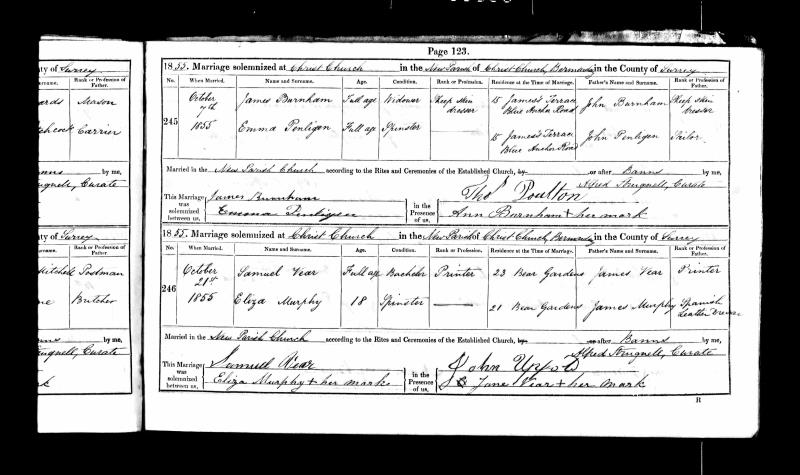 ty of Surrey
Surname.
Rank or Profession of Father.
ards Mason
hcock Carrier
by me,
Strugnell, Curate
ty of Surrey
Surname.
Rank or Profession of Father.
Mitchell Postman
ne Butcher
by me,
Strugnell, Curate
rk
Page 123.
1855. Marriage solemnized at Christ Church in the New Parish of Christ Church, Bermondy in the County of Surrey
No. When Married. Name and Surname. Age. Condition. Rank or Profession. Residence at the Time of Marriage. Father's Name and Surname. Rank or Profession of Father.
245
October 7th 1855
James Burnham Full age Widower Sheep skin dresser 15 James's Terrace Blue Anchor Road John Burnham Sheep skin dresser
Emma Penligen Full age Spinster 15 James's Terrace Blue Anchor Road John Penligen Sailor
Married in the New Parish Church according to the Rites and Ceremonies of the Established Church, by or after Banns by me,
Alfred Strugnell, Curate
This Marriage was solemnized between us,
James Burnham
Emma Penligen
in the Presence of us,
Thos Poulton
Ann Burnham + her mark
1855. Marriage solemnized at Christ Church in the New Parish of Christ Church, Bermondy in the County of Surrey
No. When Married. Name and Surname. Age. Condition. Rank or Profession. Residence at the Time of Marriage. Father's Name and Surname. Rank or Profession of Father.
246
October 21st 1855
Samuel Vear Full age Bachelor Printer 23 Bear Gardens James Vear Printer
Eliza Murphy 18 Spinster 21 Bear Gardens James Murphy Spanish Leather Dresser
Married in the New Parish Church according to the Rites and Ceremonies of the Established Church, by or after Banns by me,
Alfred Strugnell, Curate
This Marriage was solemnized between us,
Samuel Vear
Eliza Murphy + her mark
in the Presence of us,
John Upfold
Jane Vear + her mark
R